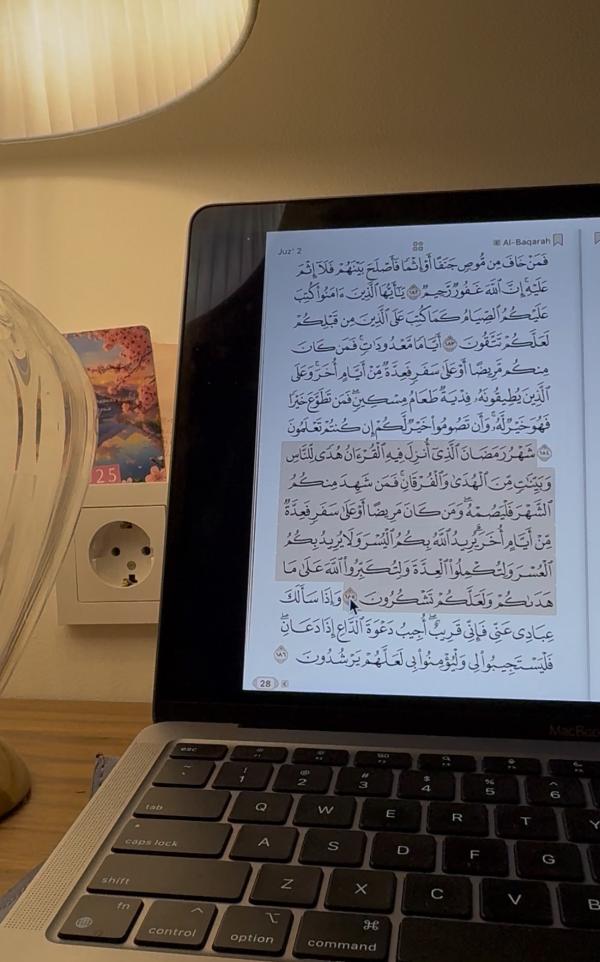 Juz' 2
Al-Baqarah
فَمَنْ خَافَ مِن مُّوصٍ جَنَفًا أَوْ إِثْمًا فَأَصْلَحَ بَيْنَهُمْ فَلَآ إِثْمَ
عَلَيْهِ ۚ إِنَّ ٱللَّهَ غَفُورٌ رَّحِيمٌ ١٨٢ يَـٰٓأَيُّهَا ٱلَّذِينَ ءَامَنُوا۟ كُتِبَ
عَلَيْكُمُ ٱلصِّيَامُ كَمَا كُتِبَ عَلَى ٱلَّذِينَ مِن قَبْلِكُمْ
لَعَلَّكُمْ تَتَّقُونَ ١٨٣ أَيَّامًا مَّعْدُودَٰتٍ ۚ فَمَن كَانَ
مِنكُم مَّرِيضًا أَوْ عَلَىٰ سَفَرٍ فَعِدَّةٌ مِّنْ أَيَّامٍ أُخَرَ ۚ وَعَلَى
ٱلَّذِينَ يُطِيقُونَهُۥ فِدْيَةٌ طَعَامُ مِسْكِينٍ ۖ فَمَن تَطَوَّعَ خَيْرًا
فَهُوَ خَيْرٌ لَّهُۥ ۚ وَأَن تَصُومُوا۟ خَيْرٌ لَّكُمْ ۖ إِن كُنتُمْ تَعْلَمُونَ
١٨٤ شَهْرُ رَمَضَانَ ٱلَّذِىٓ أُنزِلَ فِيهِ ٱلْقُرْءَانُ هُدًى لِّلنَّاسِ
وَبَيِّنَـٰتٍ مِّنَ ٱلْهُدَىٰ وَٱلْفُرْقَانِ ۚ فَمَن شَهِدَ مِنكُمُ
ٱلشَّهْرَ فَلْيَصُمْهُ ۖ وَمَن كَانَ مَرِيضًا أَوْ عَلَىٰ سَفَرٍ فَعِدَّةٌ
مِّنْ أَيَّامٍ أُخَرَ ۗ يُرِيدُ ٱللَّهُ بِكُمُ ٱلْيُسْرَ وَلَا يُرِيدُ بِكُمُ
ٱلْعُسْرَ وَلِتُكْمِلُوا۟ ٱلْعِدَّةَ وَلِتُكَبِّرُوا۟ ٱللَّهَ عَلَىٰ مَا
هَدَىٰكُمْ وَلَعَلَّكُمْ تَشْكُرُونَ ١٨٥ وَإِذَا سَأَلَكَ
عِبَادِى عَنِّى فَإِنِّى قَرِيبٌ ۖ أُجِيبُ دَعْوَةَ ٱلدَّاعِ إِذَا دَعَانِ ۖ
فَلْيَسْتَجِيبُوا۟ لِى وَلْيُؤْمِنُوا۟ بِى لَعَلَّهُمْ يَرْشُدُونَ ١٨٦
28
25
MacBoo
esc
~ `
! 1
@ 2
# 3
$ 4
% 5
^ 6
tab Q W E R T Y
caps lock A S D F G
shift Z X C V B
fn control option command